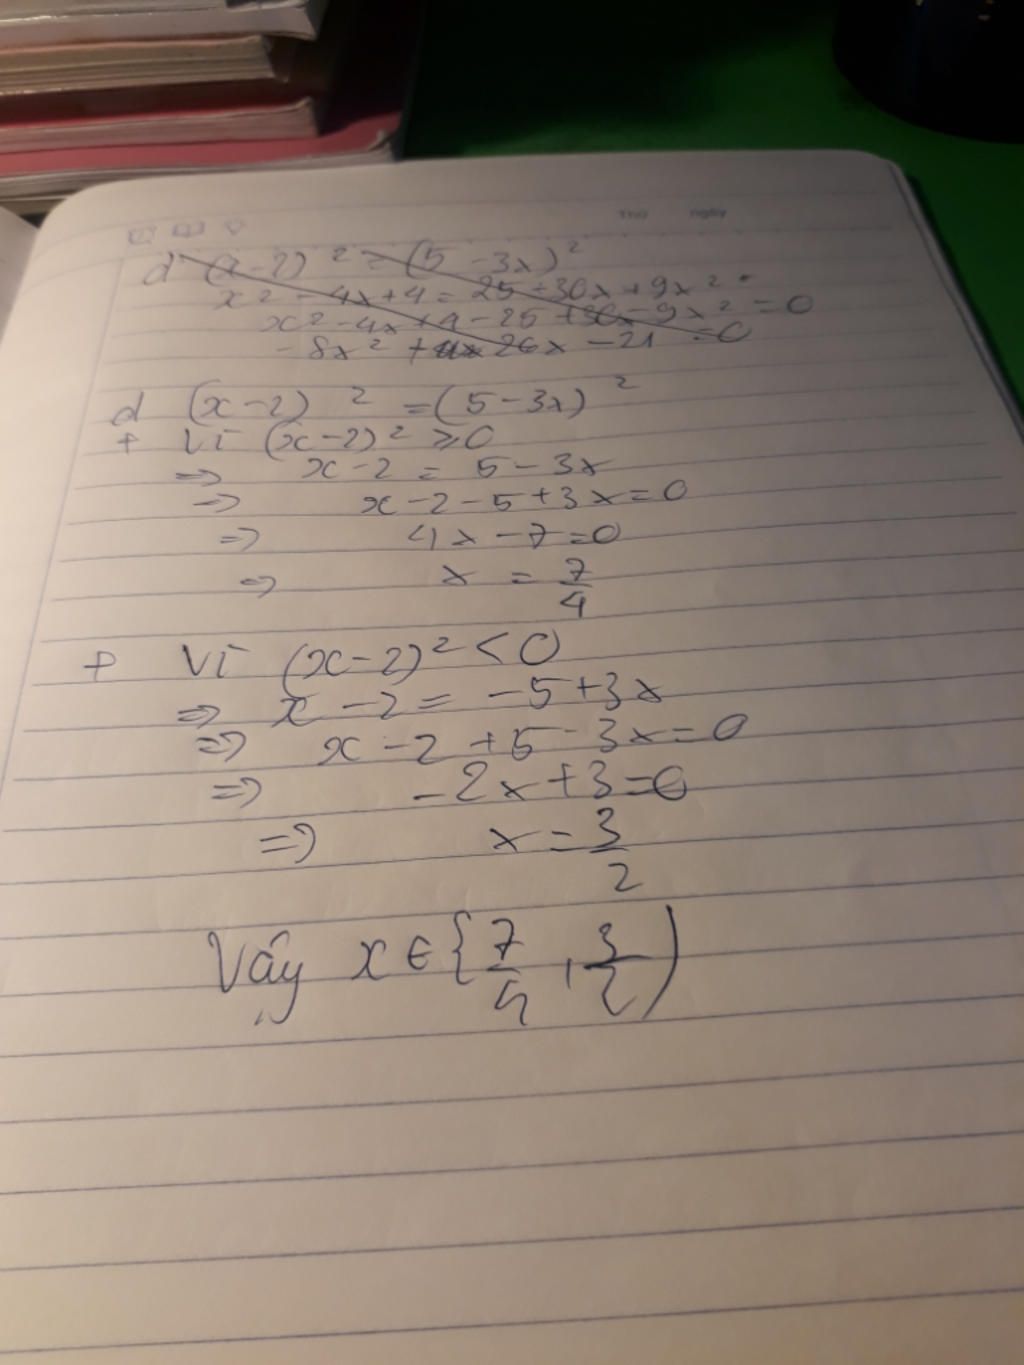 Thứ ngày
d (x-2)² = (5-3x)²
x² - 4x + 4 = 25 - 30x + 9x²
x² - 4x + 4 - 25 + 30x - 9x² = 0
- 8x² + 26x - 21 = 0
d (x-2)² = (5-3x)²
+ Vì (x-2)² ⩾ 0
=> x - 2 = 5 - 3x
=> x - 2 - 5 + 3x = 0
=> 4x - 7 = 0
=> x = 7/4
+ Vì (x-2)² < 0
=> x - 2 = -5 + 3x
=> x - 2 + 5 - 3x = 0
=> - 2x + 3 = 0
=> x = 3/2
Vậy x ∈ {7/4, 3/2)